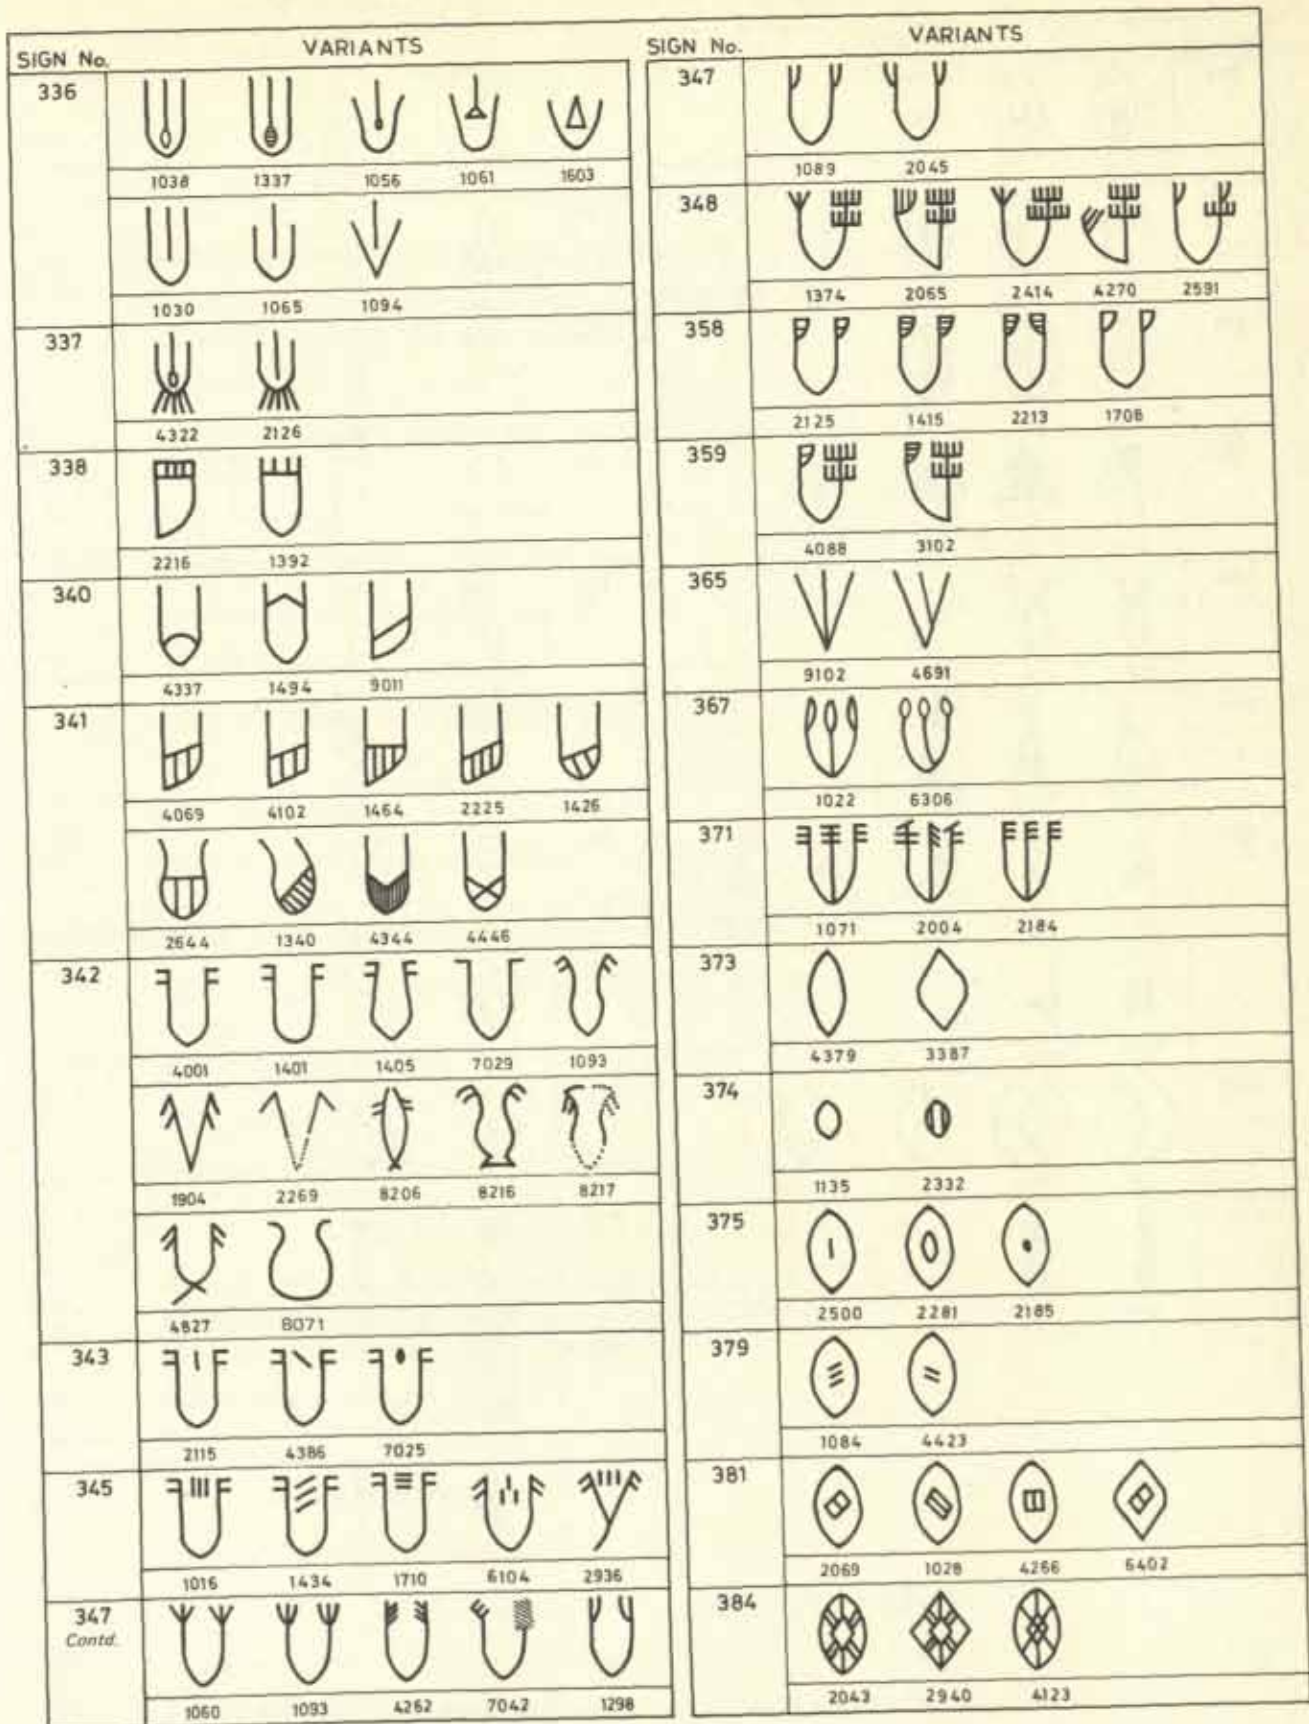 SIGN No. VARIANTS
336
1038 1337 1056 1061 1603
1030 1065 1094
337
4322 2126
338
2216 1392
340
4337 1494 9011
341
4069 4102 1464 2225 1426
2644 1340 4344 4446
342
4001 1401 1405 7029 1093
1904 2269 8206 8216 8217
4827 8071
343
2115 4386 7025
345
1016 1434 1710 6104 2936
347
Contd.
1060 1093 4262 7042 1298
SIGN No. VARIANTS
347
1089 2045
348
1374 2065 2414 4270 2591
358
2125 1415 2213 1708
359
4088 3102
365
9102 4691
367
1022 6306
371
1071 2004 2184
373
4379 3387
374
1135 2332
375
2500 2281 2185
379
1084 4423
381
2069 1028 4266 6402
384
2043 2940 4123